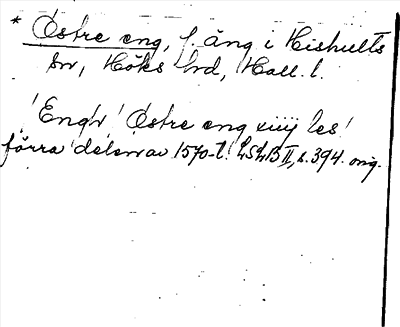 * Östre eng, f. äng i Hishults
sn, Höks hrd, Hall. l.
'Engh' Östre eng xiiij les'
förra delen av 1570-t. LSLB II, s. 394. orig.